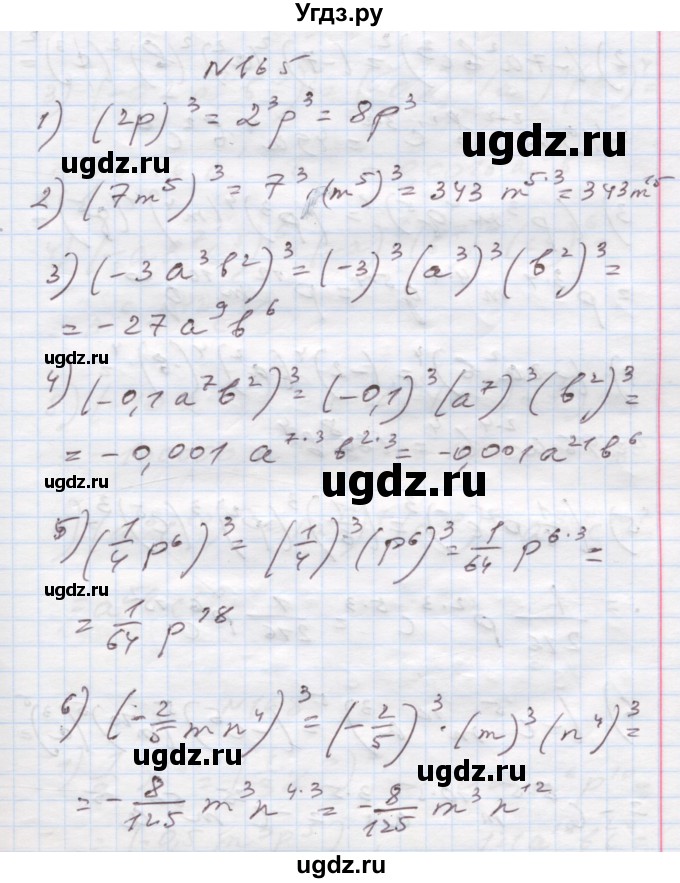 Угдз.ру
N165
1) (2p)³ = 2³p³ = 8p³
ugdz.ru
ugdz.ru
2) (7m⁵)³ = 7³·(m⁵)³ = 343 m⁵·³ = 343m¹⁵
3) (-3a³b²)³ = (-3)³(a³)³(b²)³ =
= -27a⁹b⁶
ugdz.ru
ugdz.ru
4) (-0,1a⁷b²)³ = (-0,1)³(a⁷)³(b²)³ =
= -0,001 a⁷·³ b²·³ = -0,001a²¹b⁶
ugdz.ru
ugdz.ru
5) (1/4 p⁶)³ = (1/4)³(p⁶)³ = 1/64 p⁶·³ =
ugdz.ru
= 1/64 p¹⁸
6) (-2/5 mn⁴)³ = (-2/5)³·(m)³(n⁴)³ =
ugdz.ru
ugdz.ru
= -8/125 m³n⁴·³ = -8/125 m³n¹²
ugdz.ru
ugdz.ru